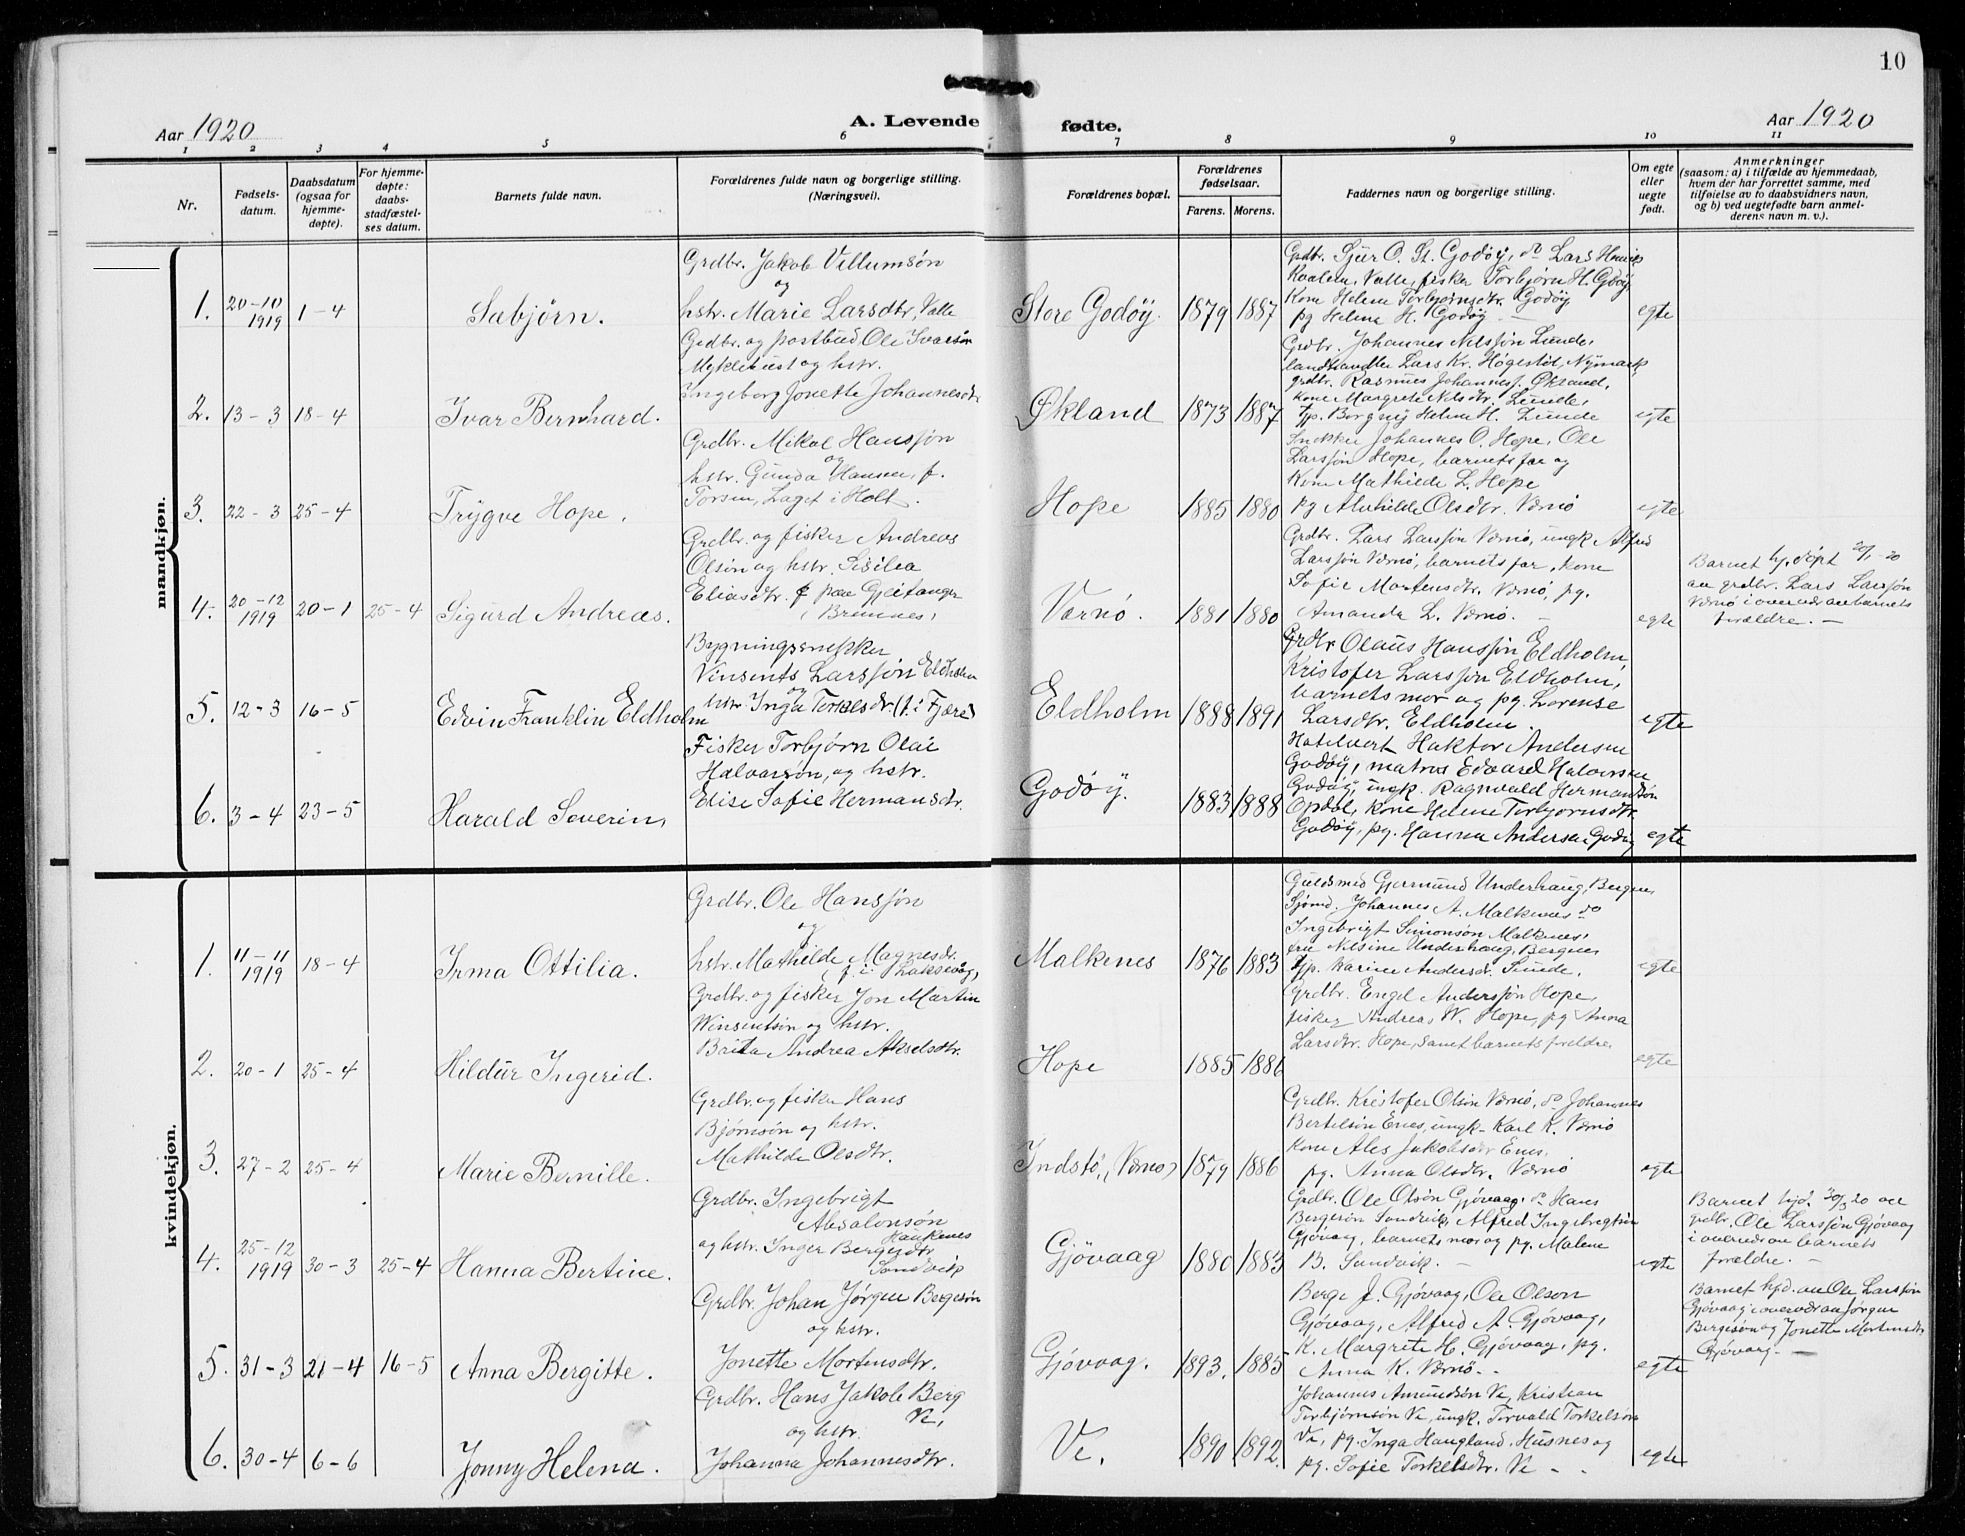 10
Aar 1920
A. Levende fødte.
Aar 1920
1 2 3 4 5 6 7 8 9 10 11
Nr.
Fødsels-
datum.
Daabsdatum
(ogsaa for
hjemme-
døpte).
For hjemme-
døpte:
daabs-
stadfæstel-
ses datum.
Barnets fulde navn.
Forældrenes fulde navn og borgerlige stilling.
(Næringsvei).
Forældrenes bopæl.
Forældrenes
fødselsaar.
Farens. Morens.
Faddernes navn og borgerlige stilling.
Om egte
eller
uegte
født.
Anmerkninger
(saasom: a) i tilfælde av hjemmedaab,
hvem der har forrettet samme, med
tilføielse av to daabsvidners navn,
og b) ved uegtefødte barn anmel-
derens navn m. v.).
mandkjøn.
1. 20-10 1919 1-4 Sæbjørn.
Grdbr. Jakob Villumsøn
og
hstr. Marie Larsdtr. Valle
Store Godøy. 1879 1887
Grdbr. Sjur O. St. Godøy, do Lars Henrik
Valle, fisker Torbjørn H. Godøy,
Kone Helene Torbjørnsdtr. Godøy
pg Helena H. Godøy
egte
2. 13-3 18-4 Ivar Bernhard.
Grdbr. og postbud Ole Ivarsøn
Myklebust og hstr.
Ingeborg Jonette Johannesdtr.
Økland 1873 1887
Grdbr. Johannes Nilssøn Lunde,
landhandler Lars Kr. Høgestøl, Nymark,
grdbr. Rasmus Johannes. Økland,
kone Margrete Nilsdtr. Lunde,
tjp. Borgny H. Lunde
egte
3. 22-3 25-4 Trygve Hope.
Grdbr. Mikal Hanssøn
og
hstr. Gunda Hansen, f.
Laget i Holt.
Hope 1885 1880
Snekker Johannes O. Hope, Ole
Larssøn Hope, barnets far og
Kone Mathilde L. Hope
pg Alvhilde Olsdtr. Værnø
egte
4. 20-12 1919 20-1 25-4 Sigurd Andreas.
Grdbr. og fisker Andreas
Olsøn og hstr. Sisilia
Eliasdtr. f paa Gjeitanger
(Bremnes)
Værnø. 1881 1880
Grdbr. Lars Larssøn Værnø, ungk. Alfred
Larssøn Værnø, barnets far, kone
Sofie Mortensdtr. Værnø, pg.
Amanda L. Værnø.
egte
Barnet hj. døpt 20/1-20
av grdbr. Lars Larssøn
Værnø i overvær av barnets
forældre.
5. 12-3 16-5 Edvin Franklin Eldholm
Bygningssnekker
Vinsents Larssøn Eldholm
og
hstr. Inga Terkelsdtr. (f. i Fjære)
Eldholm 1888 1891
Grdbr. Olaus Hanssøn Eldholm,
Kristofer Larssøn Eldholm,
barnets mor og pg. Lorense
Larsdtr. Eldholm.
egte
6. 3-4 23-5 Harald Severin,
Fisker Torbjørn Olai
Halvarsøn, og hstr.
Elise Sofie Hermansdtr.
Godøy. 1883 1888
Haktor Andersen
Godøy, matros Edvard Halvorsen
Godøy, ungk. Ragnvald Hermansøn
Opdal, kone Helene Torbjørnsdtr.
Godøy, pg. Hanna Andersen Godøy
egte
kvindekjøn.
1. 11-11 1919 18-4 Irma Ottilia.
Grdbr. Ole Hanssøn
og
hstr. Mathilde Magnesdtr.
(f. i Laksevåg)
Malkenes 1876 1883
Guldsmed Gjermund Underhaug, Bergen,
Sjømd. Johannes A. Malkenes do
Ingebrigt Simonsøn Malkenes,
fru Nilsine Underhaug, Bergen,
tjp. Karine Andersdtr. Sunde.
egte
2. 20-1 25-4 Hildur Ingerid.
Grdbr. og fisker Jon Martin
Winsentsøn og hstr.
Andrea Akselsdtr.
Hope 1885 1886
Grdbr. Engel Anderssøn Hope,
fisker Andreas W. Hope, pg Anna
Larsdtr. Hope, samt barnets forældre
egte
3. 27-2 25-4 Marie Bernille.
Grdbr. og fisker Hans
Bjørnsøn og hstr.
Mathilde Olsdtr.
Indstø, (Værnø) 1879 1886
Grdbr. Kristofer Olsøn Værnø, do Johannes
Bertelsøn Enes, ungk. Karl K. Værnø
Kone Ales Jakobsdtr Enes,
pg. Anna Olsdtr. Værnø
egte
4. 25-12 1919 30-3 25-4 Hanna Bertine.
Grdbr. Ingebrigt
Absalonsøn
Haukenes
og hstr. Inger Bergesdtr.
Sandvik
Gjøvaag 1880 1883
Grdbr. Ole Olsøn Gjøvaag, do Hans
Bergesøn Sandvik, Alfred Ingebrigtsøn
Gjøvaag, barnets mor og pg. Malene
B. Sandvik.
egte
Barnet hjd. 30/3 20 av
grdbr. Ole Larssøn Gjøvaag
i overvær av barnets
forældre.
5. 31-3 21-4 16-5 Anna Bergitte.
Grdbr. Johan Jørgen Bergesøn
og hstr.
Jonette Mortensdtr.
Gjøvaag. 1893. 1885
Berge J. Gjøvaag, Ole Olson
Gjøvaag, Alfred A. Gjøvaag,
K. Margrete H. Gjøvaag, pg.
Anna K. Værnø.
egte
Barnet hjd. av Ole Larssøn
Gjøvaag i overvær av Jørgen
Bergesøn og Jonette Mortensdtr.
Gjøvaag.
6. 30-4 6-6 Jonny Helena.
Grdbr. Hans Jakob Berg
Ve,
og hstr.
Johanna Johannesdtr.
Ve. 1890 1892.
Johannes Amundsøn Ve, Kristian
Torbjørnsøn Ve, ungk. Torvald Torkelsøn
Ve, pg. Inga Haugland, Husnes og
pg. Sofie Torkelsdtr. Ve
egte